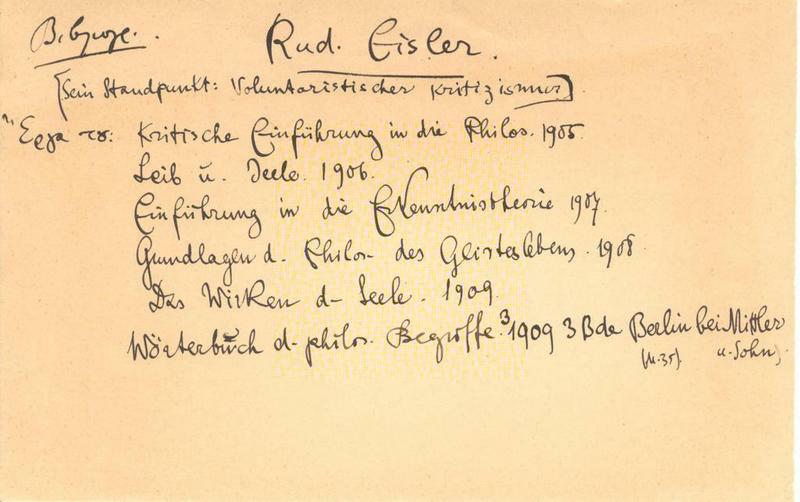 Βιβλιογρ.
Rud. Eisler.
[Sein Standpunkt: Voluntaristischer Kritizismus]
Ἔργα του: Kritische Einführung in die Philos. 1905.
Leib u. Seele. 1906.
Einführung in die Erkenntnistheorie 1907.
Grundlagen d. Philos. des Geisteslebens. 1908
Das Wirken d. Seele. 1909
Wörterbuch d. philos. Begriffe.³ 1909 3 Bde Berlin bei Mittler
(M. 35). u. Sohn).